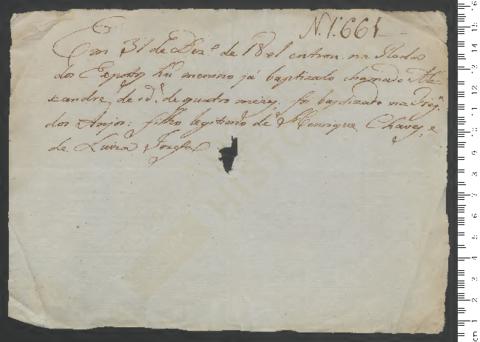 N. 1661
Em 31 de Dez.º de 1801 entrou na Roda
dos Expostos hũ menino já baptizado chamado Ale
xandre, de id.e de quatro mezes, foi baptizado na Freg.
dos Anjos: filho legitimo de Henrique Chaves, e
de Luiza Josefa